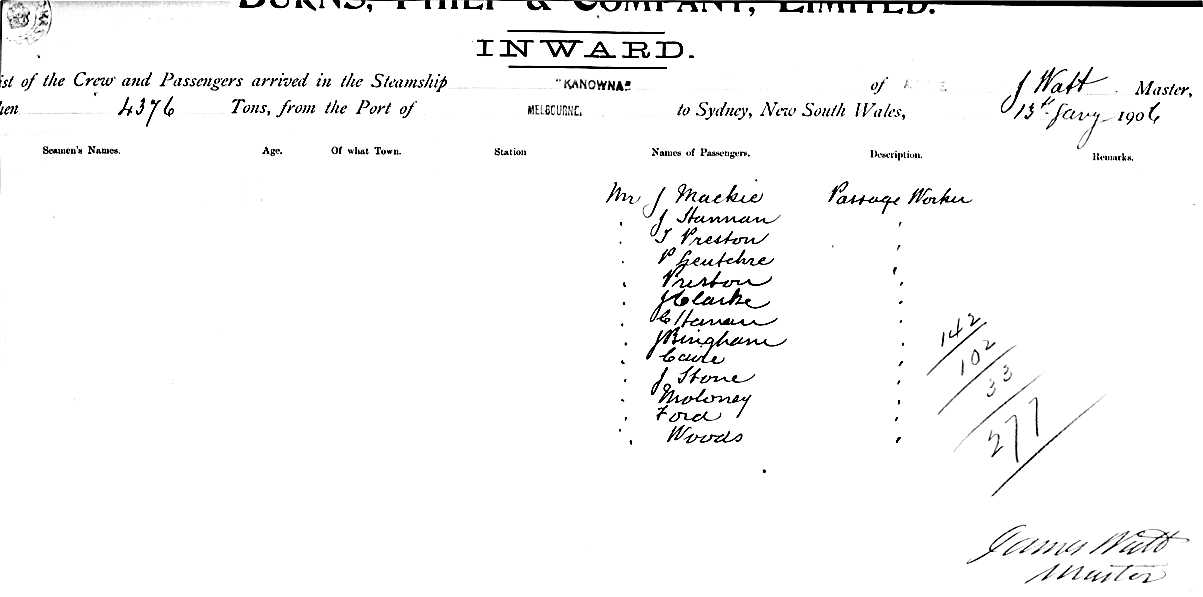 BURNS, PHILP & COMPANY, LIMITED.
INWARD.
ist of the Crew and Passengers arrived in the Steamship "KANOWNA" of J Watt Master,
hen 4376 Tons, from the Port of MELBOURNE. to Sydney, New South Wales, 13th Jany 1906
Seamen's Names. Age. Of what Town. Station Names of Passengers. Description. Remarks.
Mr J Mackie Passage Worker
" J Hannan "
" T Preston "
" P "
" Preston "
" J Clarke "
" C Hanan "
" J Bingham "
" "
" J Stone "
" Moloney "
" Ford "
" Woods "
142
102
33
277
James Watt
Master